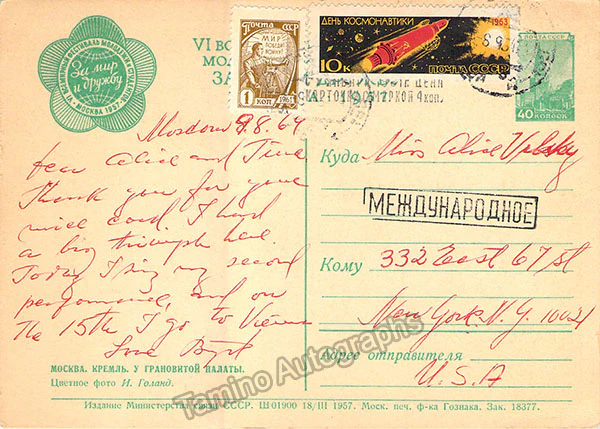 VI ВСЕМИРНЫЙ ФЕСТИВАЛЬ МОЛОДЕЖИ И СТУДЕНТОВ
За мир
и дружбу
МОСКВА • 1957
VI ВС
МОЛ
ЗА
А. 1957
Почта СССР
МИР
1
КОП
1961
ДЕНЬ КОСМОНАВТИКИ
1963
10К
ПОЧТА СССР
ПОЧТА СССР
40 КОПЕЕК
КАРТОЧКИ С МАРКОЙ 4 коп.
Moscow 9.8.64
Dear Alice and Tina
Thank you for your
nice card. I had
a big triumph here.
Today I sing my second
performance, and on
the 15th I go to Vienna
Love
Куда Miss Alice
МЕЖДУНАРОДНОЕ
Кому 332 East 67 st
New York. N.Y. 10021
Адрес отправителя
U.S.A
МОСКВА. КРЕМЛЬ. У ГРАНОВИТОЙ ПАЛАТЫ.
Цветное фото И. Голанд.
Издание Министерства связи СССР. Ш 01900 18/III 1957. Моск. печ. ф-ка Гознака. Зак. 18377.
Tamino Autographs